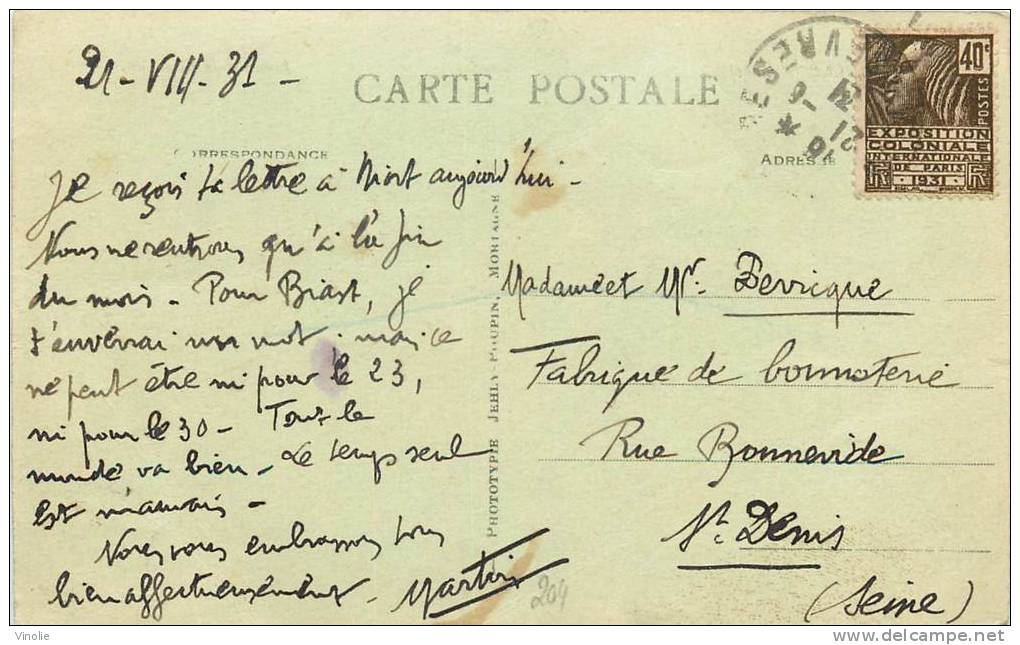 21-VIII-31-
CARTE POSTALE
CORRESPONDANCE
ADRESSE
40c
POSTES
EXPOSITION
COLONIALE
INTERNATIONALE
DE PARIS
1931
Je reçois ta lettre à Niort aujourd'hui -
Nous ne rentrons qu'à la fin
du mois - Pour Biast, je
t'enverrai un mot : mais ce
ne peut être ni pour le 23,
ni pour le 30 - Tout le
monde va bien - Le temps seul
est mauvais -
Nous vous embrassons tous
bien affectueusement - Martin
PHOTOTYPIE JEHLY-POUPIN, MORTAGNE
Madame et Mr. Devicque
Fabrique de bonneterie
Rue Bonnevide
St. Denis
(Seine)
204
Vinolie
http://www.delcampe.net